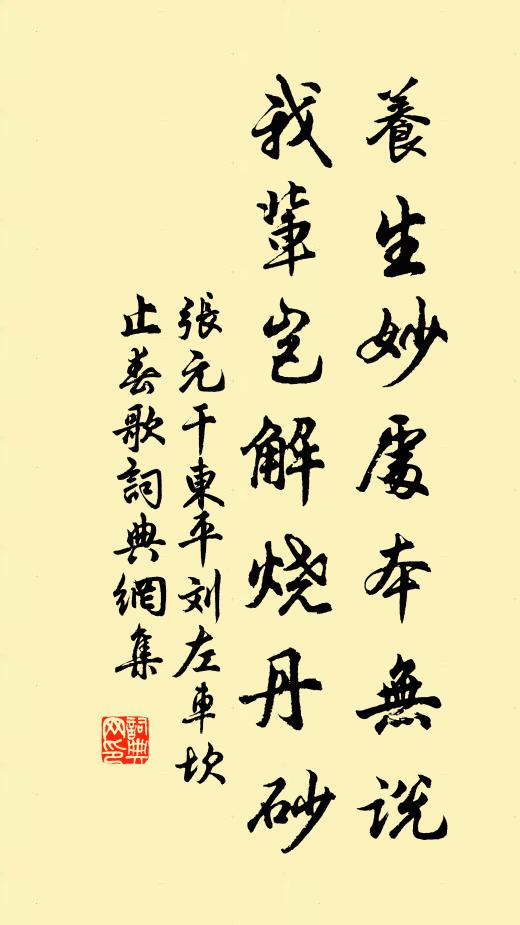 養生妙處本無說
我輩豈解燒丹砂
張元干東平刘左車坎
止春歌詞典網集
詞典網印